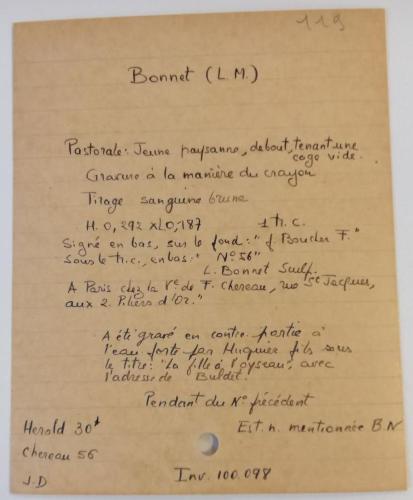 119
Bonnet (L.M.)
Pastorale: Jeune paysanne, debout, tenant une
cage vide.
Gravure à la manière du crayon
Tirage sanguine brune
H. 0,292 x L 0,187 1 tr. c.
Signé en bas, sur le fond: "f. Boucher F."
Sous le tr.c., en bas: " N° 56"
L. Bonnet Sculp.
A Paris chez la Vᵉ de F. Chereau, rue Sᵗ Jacques,
aux 2. Piliers d'Or."
A été gravé en contre-partie à
l'eau forte par Huquier fils sous
le titre: "La fille à l'oyseau", avec
l'adresse de Buldet.
Pendant du N° précédent
Herold 30ᵗ
Est. n. mentionnée B.N
Chereau 56
J.D
Inv. 100.098